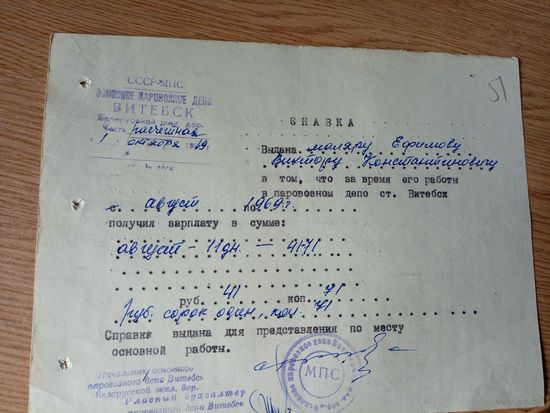 51
СССР-МПС
ОСНОВНОЕ ПАРОВОЗНОЕ ДЕПО
ВИТЕБСК
Белорусской жел. дор.
Часть расчетная
1 октября 1969 г.
СПАВКА
Выдана маляру Ефимову
Виктору Константиновичу
в том, что за время его работы
в паровозном депо ст. Витебск
с август по 1969 г.
получил зарплату в сумме:
август - 11 дн. - 41-71
руб. 41 коп. 71
руб. сорок один, коп. 71
Справка выдана для представления по месту
основной работы.
Начальник основного
паровозного депо Витебск
Белорусской жел. дор.
Главный бухгалтер
паровозного депо Витебск
МПС